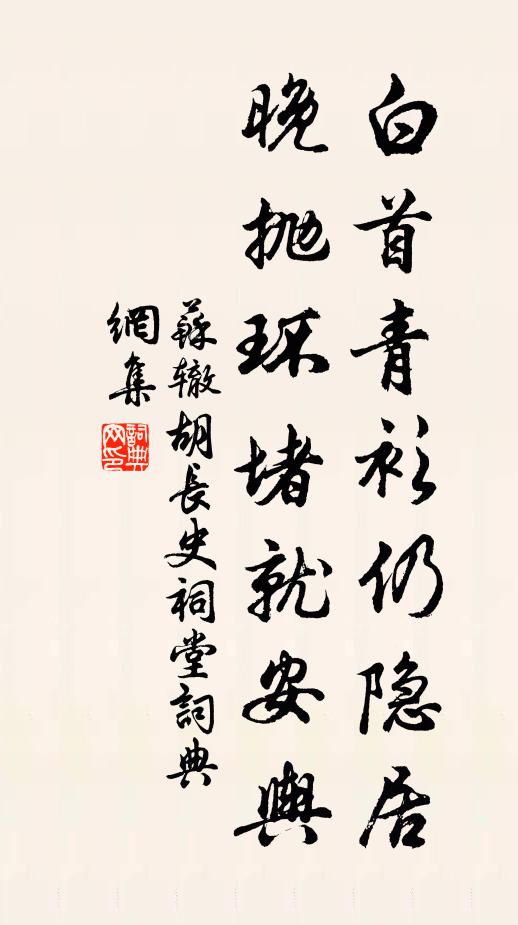 白首青衫仍隐居
晚抛环堵就安舆
蘇辙胡長史祠堂詞典
網集
詞典
网印